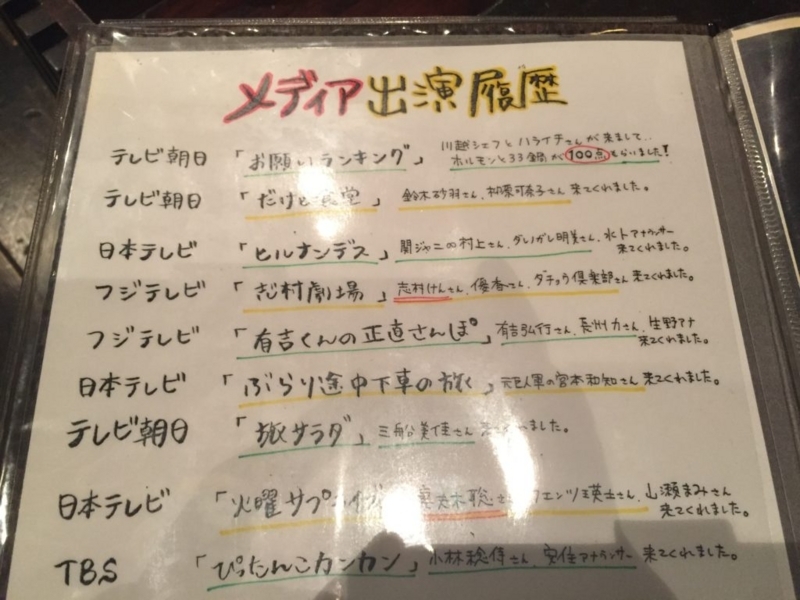 メディア出演履歴
テレビ朝日 「お願いランキング」 川越シェフとハライチさんが来まして..
ホルモンと33鍋が100点もらいました!
テレビ朝日 「だけど食堂」 鈴木砂羽さん、 来てくれました。
日本テレビ 「ヒルナンデス」 関ジャニの村上さん、ダレノガレ明美さん、水トアナウンサー
来てくれました。
フジテレビ 「志村劇場」 志村けんさん、優香さん、ダチョウ倶楽部さん来てくれました。
フジテレビ 「有吉くんの正直さんぽ」 有吉弘行さん、長州力さん、生野アナ
来てくれました。
日本テレビ 「ぶらり途中下車の旅」 元巨人軍の宮本和知さん 来てくれました。
テレビ朝日 「旅サラダ」 三船美佳さん 来てくれました。
日本テレビ 「火曜サプライズ」 さん、ウエンツ瑛士さん、山瀬まみさん
来てくれました。
TBS 「ぴったんこカンカン」 小林稔侍さん、安住アナウンサー 来てくれました。